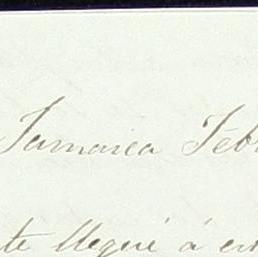 Jamaica Feb
te llegué á